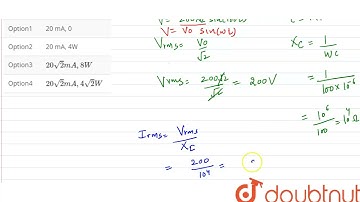 Option1 20 mA, 0
Option2 20 mA, 4W
Option3 20√2 mA, 8W
Option4 20√2 mA, 4√2 W
V = 200√2 sin(100t)
V = V0 sin(ωt)
Vrms = V0/√2
Vrms = 200√2/√2 = 200V
XC = 1/ωC
= 1/(100 × 10^-6)
= 10^6/100 = 10^4 Ω
Irms = Vrms/XC
= 200/10^4 =
doubtnut